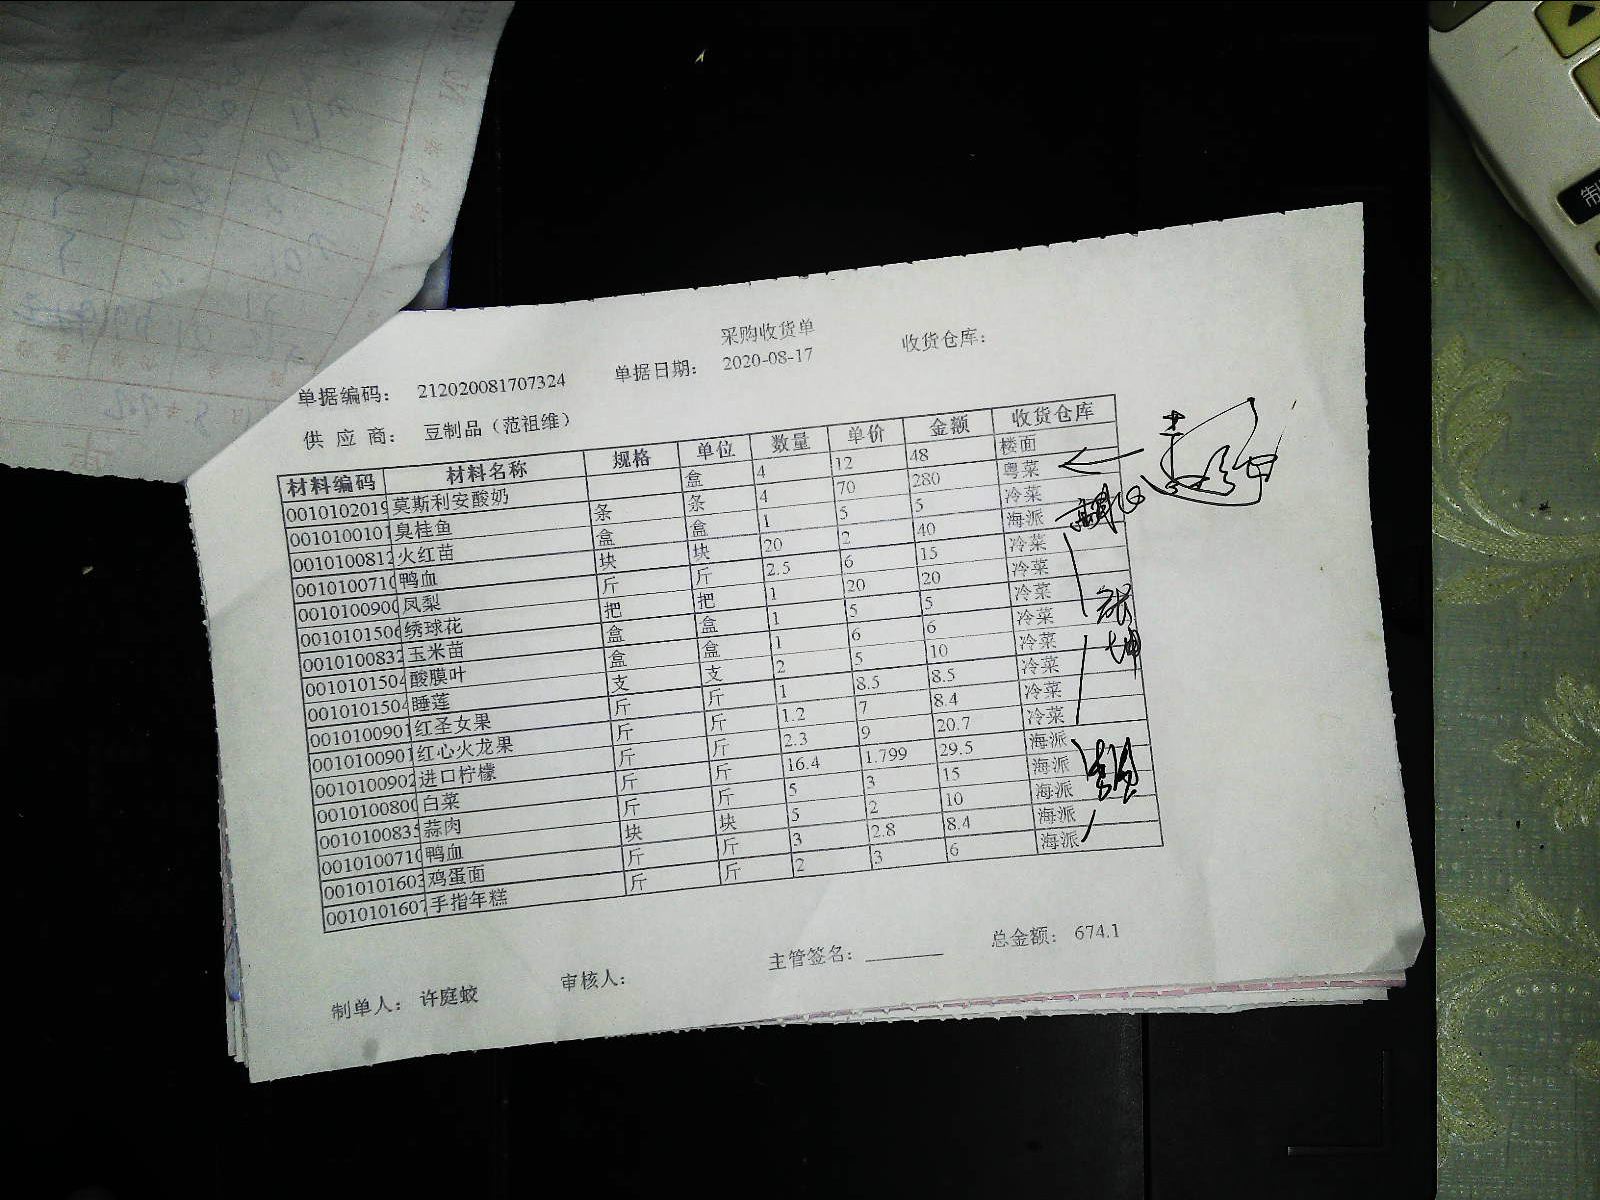 采购收货单
单据编码： 212020081707324 单据日期： 2020-08-17 收货仓库：
供 应 商： 豆制品（范祖维）
材料编码 材料名称 规格 单位 数量 单价 金额 收货仓库
0010102019 莫斯利安酸奶 盒 4 12 48 楼面
0010100101 臭桂鱼 条 条 4 70 280 粤菜
0010100812 火红苗 盒 盒 1 5 5 冷菜
0010100710 鸭血 块 块 20 2 40 海派
0010100900 凤梨 斤 斤 2.5 6 15 冷菜
0010101506 绣球花 把 把 1 20 20 冷菜
0010100832 玉米苗 盒 盒 1 5 5 冷菜
0010101504 酸膜叶 盒 盒 1 6 6 冷菜
0010101504 睡莲 支 支 2 5 10 冷菜
0010100901 红圣女果 斤 斤 1 8.5 8.5 冷菜
0010100901 红心火龙果 斤 斤 1.2 7 8.4 冷菜
0010100902 进口柠檬 斤 斤 2.3 9 20.7 冷菜
0010100800 白菜 斤 斤 16.4 1.799 29.5 海派
0010100835 蒜肉 斤 斤 5 3 15 海派
0010100710 鸭血 块 块 5 2 10 海派
0010101603 鸡蛋面 斤 斤 3 2.8 8.4 海派
0010101607 手指年糕 斤 斤 2 3 6 海派
制单人： 许庭蛟 审核人： 主管签名： 总金额： 674.1